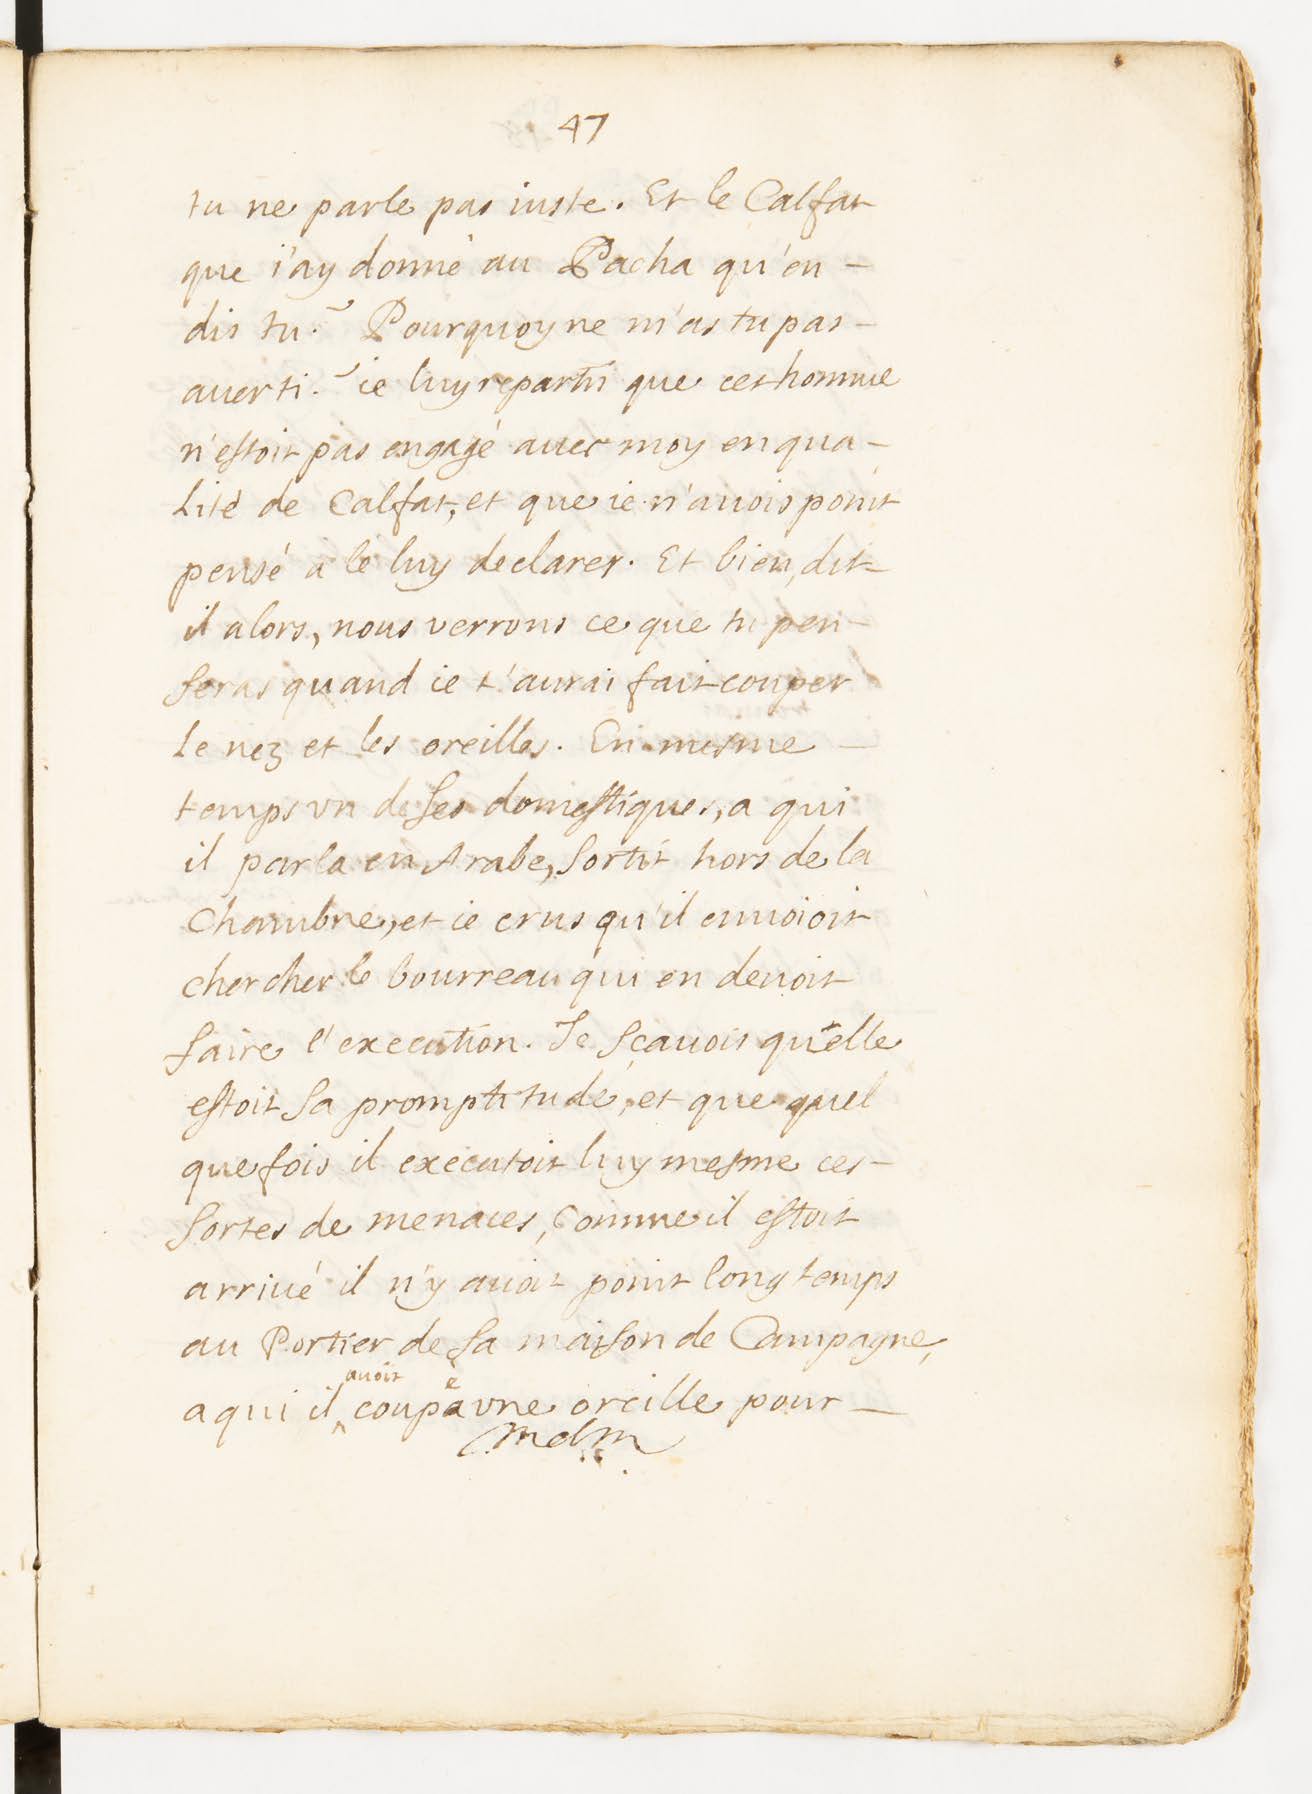 47
tu ne parle pas iuste. Et le Calfat
que i'ay donné au Pacha qu'en -
dis tu? Pourquoy ne m'as tu pas -
auerti? ie luy reparti que cet homme
n'estoit pas engagé auec moy en qua -
lité de Calfat, et que ie n'auois point
pensé a le luy declarer. Et bien, dit -
il alors, nous verrons ce que tu pen -
seras quand ie t'aurai fait couper
le nez et les oreilles. En mesme -
temps vn de ses domestiques, a qui
il parla en Arabe, sortit hors de la
Chambre, et ie crus qu'il enuoioit
chercher le bourreau qui en deuoit
faire l'execution. Je scauois qu'elle
estoit sa promptitude, et que quel
que fois il executoit luy mesme ces -
sortes de menaces, Comme il estoit
arriué il n'y auoit point long temps
au Portier de sa maison de Campagne,
a qui il auoit coupé vne oreille pour -
mdm